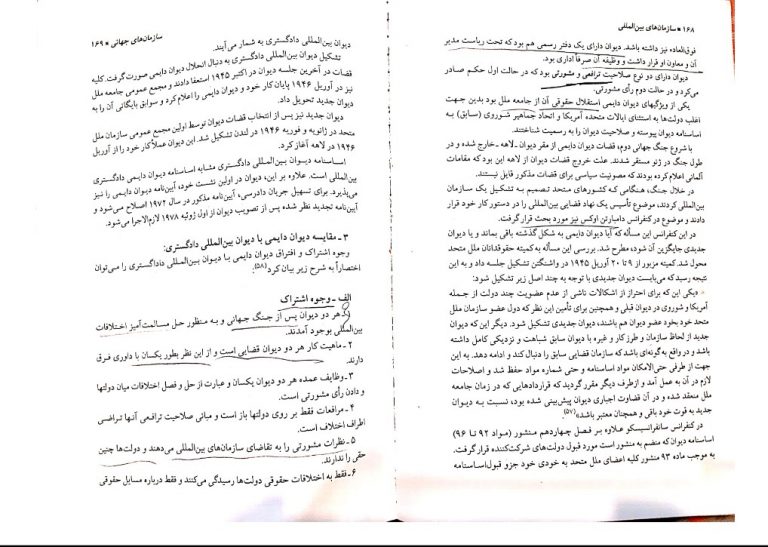 ۱۶۸ ▪ سازمان‌های بین‌المللی
فوق‌العاده نیز داشته باشد. دیوان دارای یک دفتر رسمی هم بود که تحت ریاست مدیر
آن و معاون او قرار داشت و وظیفه آن صرفاً اداری بود.
دیوان دارای دو نوع صلاحیت ترافعی و مشورتی بود که در حالت اول حکم صادر
می‌کرد و در حالت دوم رأی مشورتی.
یکی از ویژگیهای دیوان دایمی استقلال حقوقی آن از جامعه ملل بود بدین جهت
اغلب دولت‌ها به استثنای ایالات متحده آمریکا و اتحاد جماهیر شوروی (سابق) به
اساسنامه دیوان پیوسته و صلاحیت دیوان را به رسمیت شناختند.
با شروع جنگ جهانی دوم، قضات دیوان دایمی از مقر دیوان ـ لاهه ـ خارج شده و در
طول جنگ در ژنو مستقر شدند. علت خروج قضات از لاهه این بود که مقامات
آلمانی اعلام کرده بودند که مصونیت سیاسی برای قضات مذکور قایل نیستند.
در خلال جنگ، هنگامی که کشورهای متحد تصمیم به تشکیل یک سازمان
بین‌المللی کردند، موضوع تأسیس یک نهاد قضایی بین‌المللی را در دستور کار خود قرار
دادند و موضوع در کنفرانس دامبارتن اوکس نیز مورد بحث قرار گرفت.
در این کنفرانس این مسأله که آیا دیوان دایمی به شکل گذشته باقی بماند و یا دیوان
جدیدی جایگزین آن شود، مطرح شد. بررسی این مسأله به کمیته حقوقدانان ملل متحد
محول شد. کمیته مزبور از ۹ تا ۲۰ آوریل ۱۹۴۵ در واشنگتن تشکیل جلسه داد و به این
نتیجه رسید که می‌بایست دیوان جدیدی با توجه به چند اصل زیر تشکیل شود:
«یکی این که برای احتراز از اشکالات ناشی از عدم عضویت چند دولت از جمله
آمریکا و شوروی در دیوان قبلی و همچنین برای تأمین این نظر که دول عضو سازمان ملل
متحد خود بخود عضو دیوان هم باشند، دیوان جدیدی تشکیل شود. دیگر این که دیوان
جدید از لحاظ سازمان و طرز کار و غیره با دیوان سابق شباهت و نزدیکی کامل داشته
باشد و در واقع به‌گونه‌ای باشد که سازمان قضایی سابق را دنبال کند و ادامه دهد. به این
جهت از طرفی حتی‌الامکان مواد اساسنامه و حتی شماره مواد حفظ شد و اصلاحات
لازم در آن به عمل آمد و ازطرف دیگر مقرر گردید که قراردادهایی که در زمان جامعه
ملل منعقد شده و در آن قضاوت اجباری دیوان پیش‌بینی شده بود، نسبت به دیوان
جدید به قوت خود باقی و همچنان معتبر باشد»(۵۷)
در کنفرانس سانفرانسیسکو علاوه بر فصل چهاردهم منشور (مواد ۹۲ تا ۹۶)
اساسنامه دیوان که منضم به منشور است مورد قبول دولت‌های شرکت‌کننده قرار گرفت.
به موجب ماده ۹۳ منشور کلیه اعضای ملل متحد به خودی خود جزو قبول‌اساسنامه
سازمان‌های جهانی ▪ ۱۶۹
دیوان بین‌المللی دادگستری به شمار می‌آیند.
تشکیل دیوان بین‌المللی دادگستری به دنبال انحلال دیوان دایمی صورت گرفت. کلیه
قضات در آخرین جلسه دیوان در اکتبر ۱۹۴۵ استعفا دادند و مجمع عمومی جامعه ملل
نیز در آوریل ۱۹۴۶ پایان کار خود و دیوان دایمی را اعلام کرد و سوابق بایگانی آن را به
دیوان جدید تحویل داد.
دیوان جدید نیز پس از انتخاب قضات دیوان توسط اولین مجمع عمومی سازمان ملل
متحد در ژانویه و فوریه ۱۹۴۶ در لندن تشکیل شد. این دیوان عملاً کار خود را از آوریل
۱۹۴۶ در لاهه آغاز کرد.
اساسنامه دیوان بین‌المللی دادگستری مشابه اساسنامه دیوان دایمی دادگستری
بین‌المللی است. علاوه بر این، دیوان در اولین نشست خود، آیین‌نامه دیوان دایمی را نیز
می‌پذیرد. برای تسهیل جریان دادرسی، آیین‌نامه مذکور در سال ۱۹۷۲ اصلاح می‌شود و
آیین‌نامه تجدید نظر شده پس از تصویب دیوان از اول ژوئیه ۱۹۷۸ لازم‌الاجرا می‌شود.
۳ ـ مقایسه دیوان دایمی با دیوان بین‌المللی دادگستری:
وجوه اشتراک و افتراق دیوان دایمی با دیوان بین‌المللی دادگستری را می‌توان
اختصاراً به شرح زیر بیان کرد(۵۸)
الف ـ وجوه اشتراک
هر دو دیوان پس از جنگ جهانی و به منظور حل مسالمت‌آمیز اختلافات
بین‌المللی بوجود آمدند.
۲ ـ ماهیت کار هر دو دیوان قضایی است و از این نظر بطور یکسان با داوری فرق
دارند.
۳ ـ وظایف عمده هر دو دیوان یکسان و عبارت از حل و فصل اختلافات میان دولتها
و دادن رأی مشورتی است.
۴ ـ مراجعات فقط بر روی دولتها باز است و مبانی صلاحیت ترافعی آنها تراضی
اطراف اختلاف است.
۵ ـ نظرات مشورتی را به تقاضای سازمان‌های بین‌المللی می‌دهند و دولت‌ها چنین
حقی را ندارند.
۶ ـ فقط به اختلافات حقوقی دولت‌ها رسیدگی می‌کنند و فقط درباره مسایل حقوقی